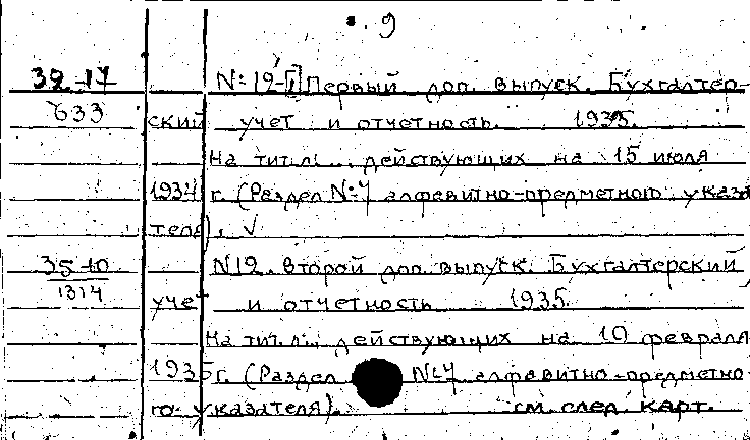 9
32-17 №12-I Первый доп. выпуск. Бухгалтер-
633 ский учет и отчетность. 1935.
На тит. л.: действующих на 15 июля
1934 г. (Раздел №7 алфавитно-предметного указа
теля). √
35-10 №12. Второй доп. выпуск. Бухгалтерский
1314 учет и отчетность 1935.
На тит. л.: действующих на 10 февраля
1935 г. (Раздел №7 алфавитно-предметно
го указателя). см. след. карт.